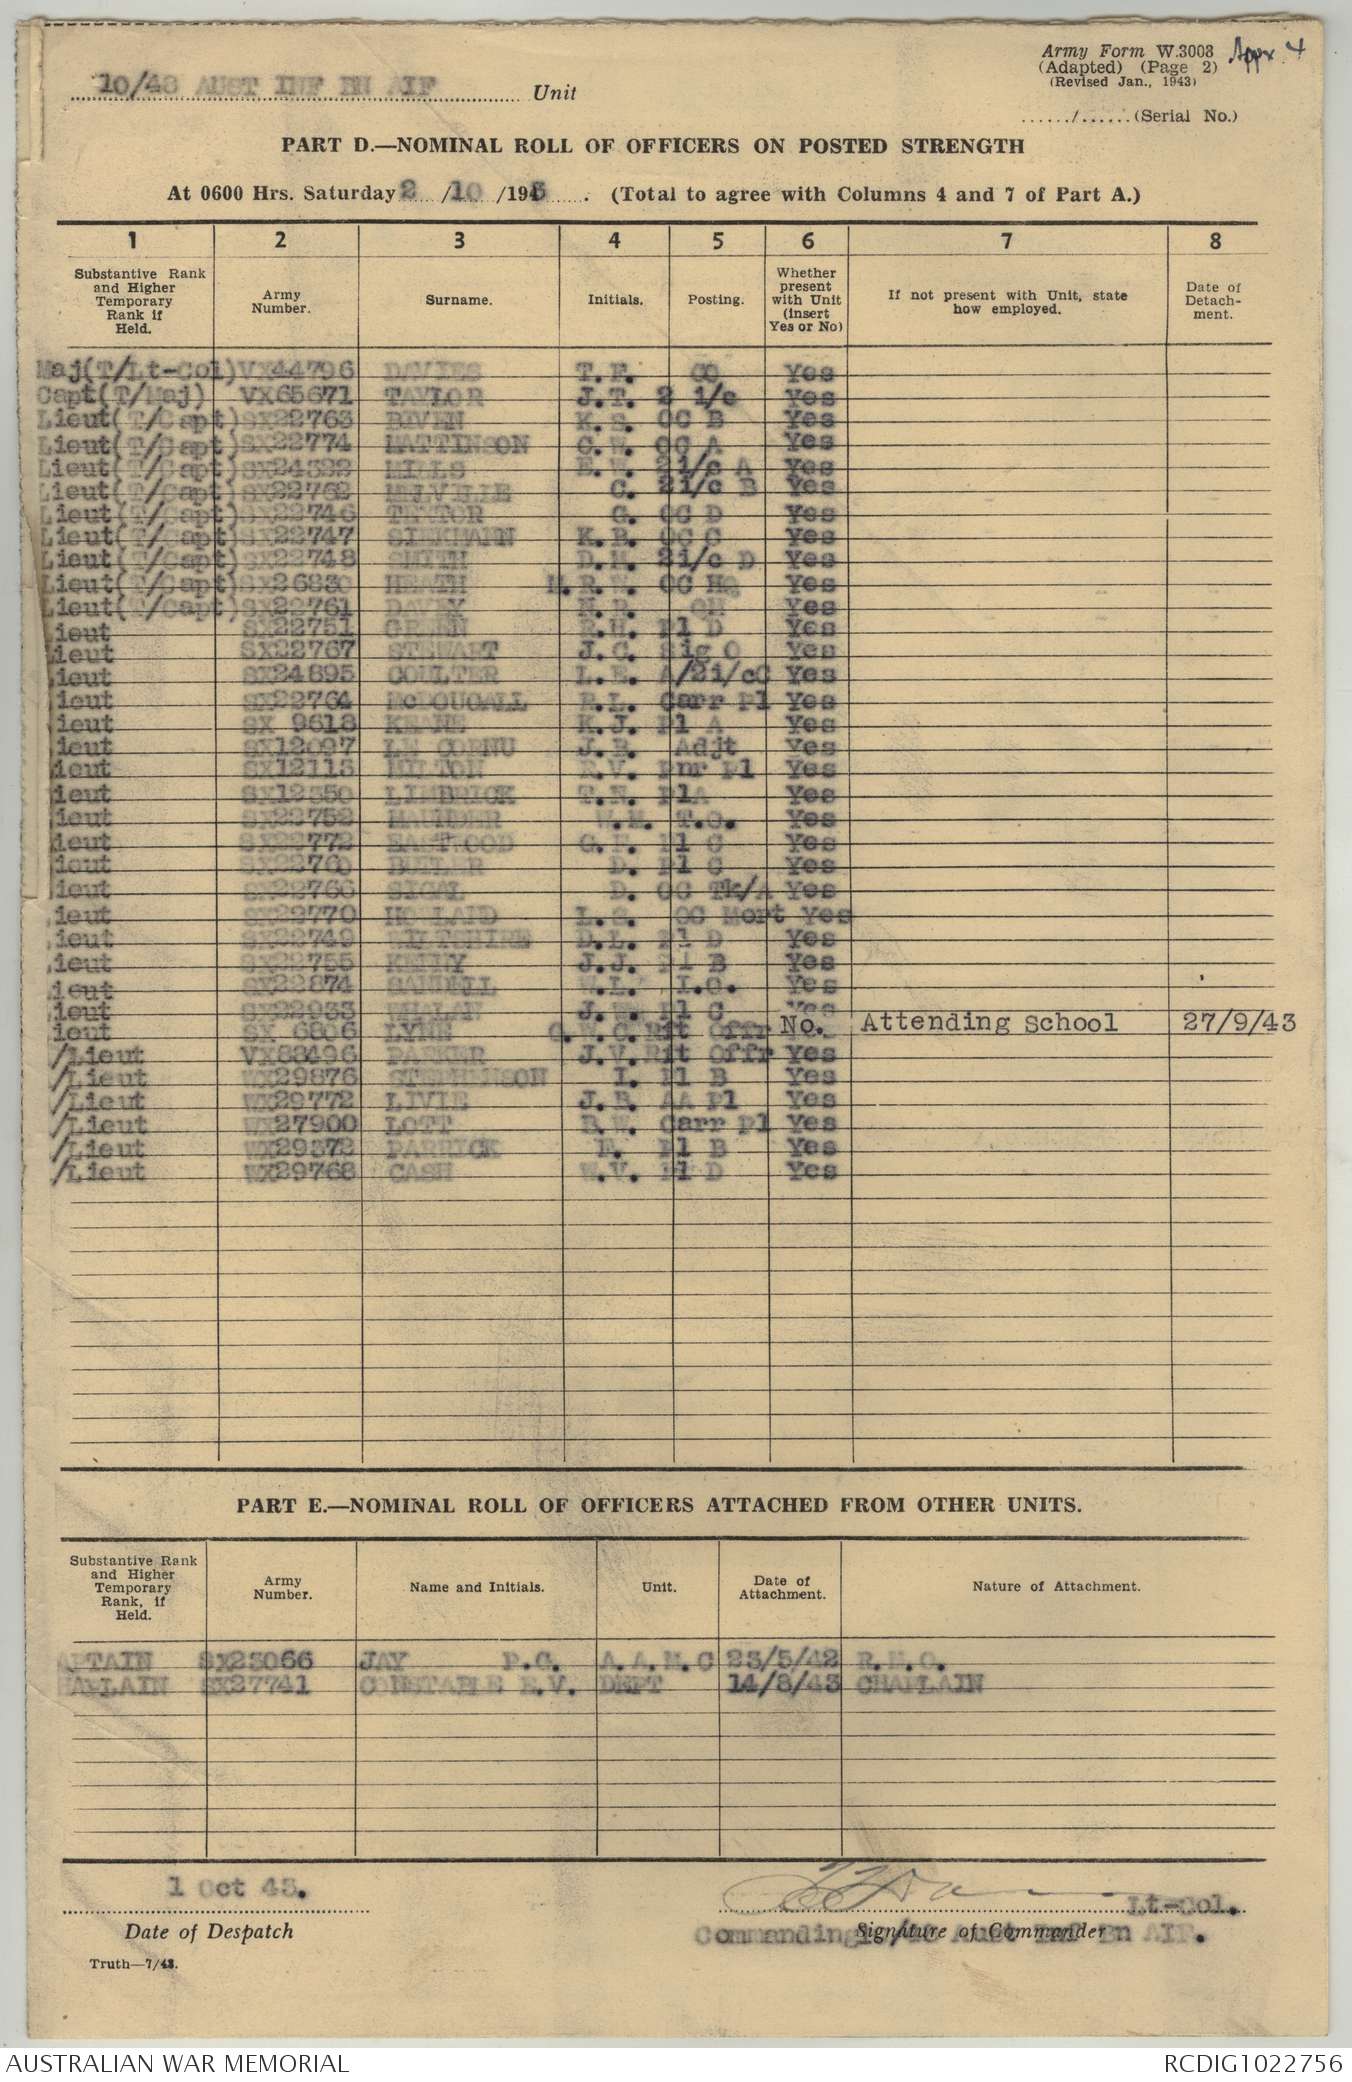 Army Form W.3008 Appx 4
(Adapted) (Page 2)
(Revised Jan., 1943)
10/48 AUST INF BN AIF Unit
....../......(Serial No.)
PART D.—NOMINAL ROLL OF OFFICERS ON POSTED STRENGTH
At 0600 Hrs. Saturday 2 /10 /1943 . (Total to agree with Columns 4 and 7 of Part A.)
1 2 3 4 5 6 7 8
Substantive Rank and Higher Temporary Rank if Held. Army Number. Surname. Initials. Posting. Whether present with Unit (insert Yes or No) If not present with Unit, state how employed. Date of Detach- ment.
Maj(T/Lt-Col) VX44796 DAVIES T.F. CO Yes
Capt(T/Maj) VX65671 TAYLOR J.T. 2 i/c Yes
Lieut(T/Capt) SX22763 BIVEN K.S. OC B Yes
Lieut(T/Capt) SX22774 MATTINSON C.W. OC A Yes
Lieut(T/Capt) SX24322 MILLS E.W. 2i/c A Yes
Lieut(T/Capt) SX22762 MELVILLE C. 2i/c B Yes
Lieut(T/Capt) SX22746 G. OC D Yes
Lieut(T/Capt) SX22747 SIEKMANN K.B. OC C Yes
Lieut(T/Capt) SX22748 SMITH D.M. 2i/c D Yes
Lieut(T/Capt) SX26830 HEATH R.W. OC HQ Yes
Lieut(T/Capt) SX22761 DAVEY N.R. QM Yes
Lieut SX22751 GREEN R.H. Pl D Yes
Lieut SX22767 STEWART J.C. Sig O Yes
Lieut SX24895 COULTER L.E. A/2i/cC Yes
Lieut SX22764 McDOUGALL R.L. Carr Pl Yes
Lieut SX 9618 KEANE K.J. Pl A Yes
Lieut SX12097 LE CORNU J.B. Adjt Yes
Lieut SX12113 HILTON R.V. Pnr Pl Yes
Lieut SX12350 LIMBRICK T.N. PlA Yes
Lieut SX22752 MAUNDER W.M. T.O. Yes
Lieut SX22772 EASTWOOD G.F. Pl C Yes
Lieut SX22760 BUTLER D. Pl C Yes
Lieut SX22766 SIGAL D. OC Tk/A Yes
Lieut SX22770 HOWLAID L.S. OC Mort Yes
Lieut SX22749 WILTSHIRE D.L. Pl D Yes
Lieut SX22755 KELLY J.J. Pl B Yes
Lieut SX22874 SANDELL W.L. I.O. Yes
Lieut SX22933 WHALAN J.W. Pl C Yes
Lieut SX 6806 LYNE G.W.C. Rit Offr No. Attending School 27/9/43
/Lieut VX88496 PARKER J.V. Rit Offr Yes
/Lieut WX29876 STEPHENSON I. Pl B Yes
/Lieut WX29772 LIVIE J.B. AA Pl Yes
/Lieut WX27900 LOTT B.W. Carr Pl Yes
/Lieut WX29372 PARRICK E. Pl B Yes
/Lieut WX29768 CASH W.V. Pl D Yes
PART E.—NOMINAL ROLL OF OFFICERS ATTACHED FROM OTHER UNITS.
Substantive Rank and Higher Temporary Rank, if Held. Army Number. Name and Initials. Unit. Date of Attachment. Nature of Attachment.
APTAIN SX23066 JAY P.G. A.A.M.C 23/5/42 R.M.O.
HAPLAIN SX27741 CONSTABLE E.V. DEPT 14/8/43 CHAPLAIN
1 Oct 43.
Lt-Col.
Date of Despatch
Signature of Commander
Commanding 10/48 Aust Inf Bn AIF.
Truth—7/43.
AUSTRALIAN WAR MEMORIAL RCDIG1022756